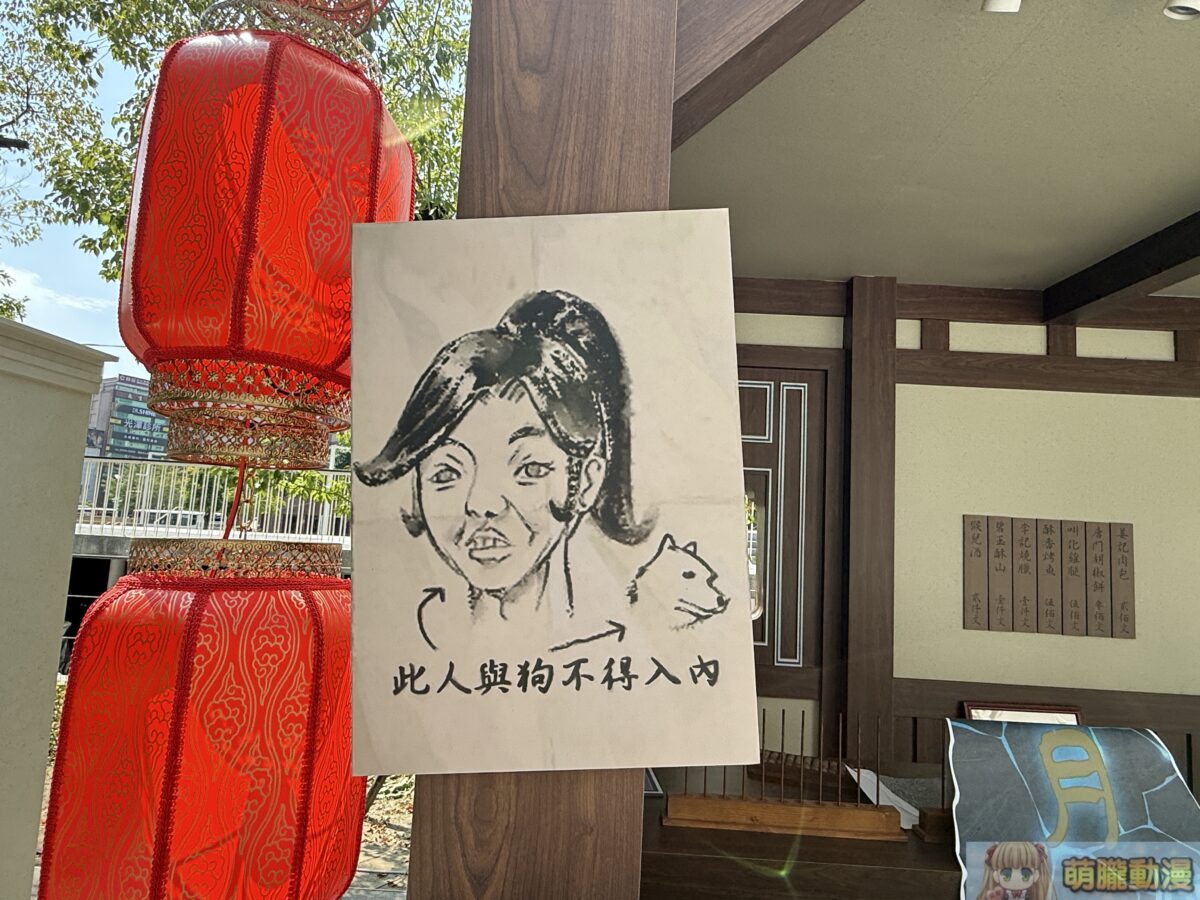 此人與狗不得入內
DR.SHINE
光澤診所
姜記肉包 貳佰文
唐門胡椒餅 參佰文
叫化雞腿 伍佰文
酥香烤魚 伍佰文
李記燒臘 壹仟文
碧玉酥山 壹仟文
猴兒酒 貳仟文
月
萌朧動漫